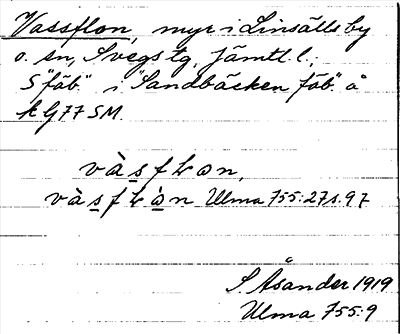 Vassflon, myr i Linsälls by
o. sn, Svegs tg, Jämtl. l.;
S "fäb." i "Sandbäcken fäb." å
kG77SM.
vàsfłon,
vàsfłòn Ulma 755:27 s. 97
S. Åsander 1919
Ulma 755:9